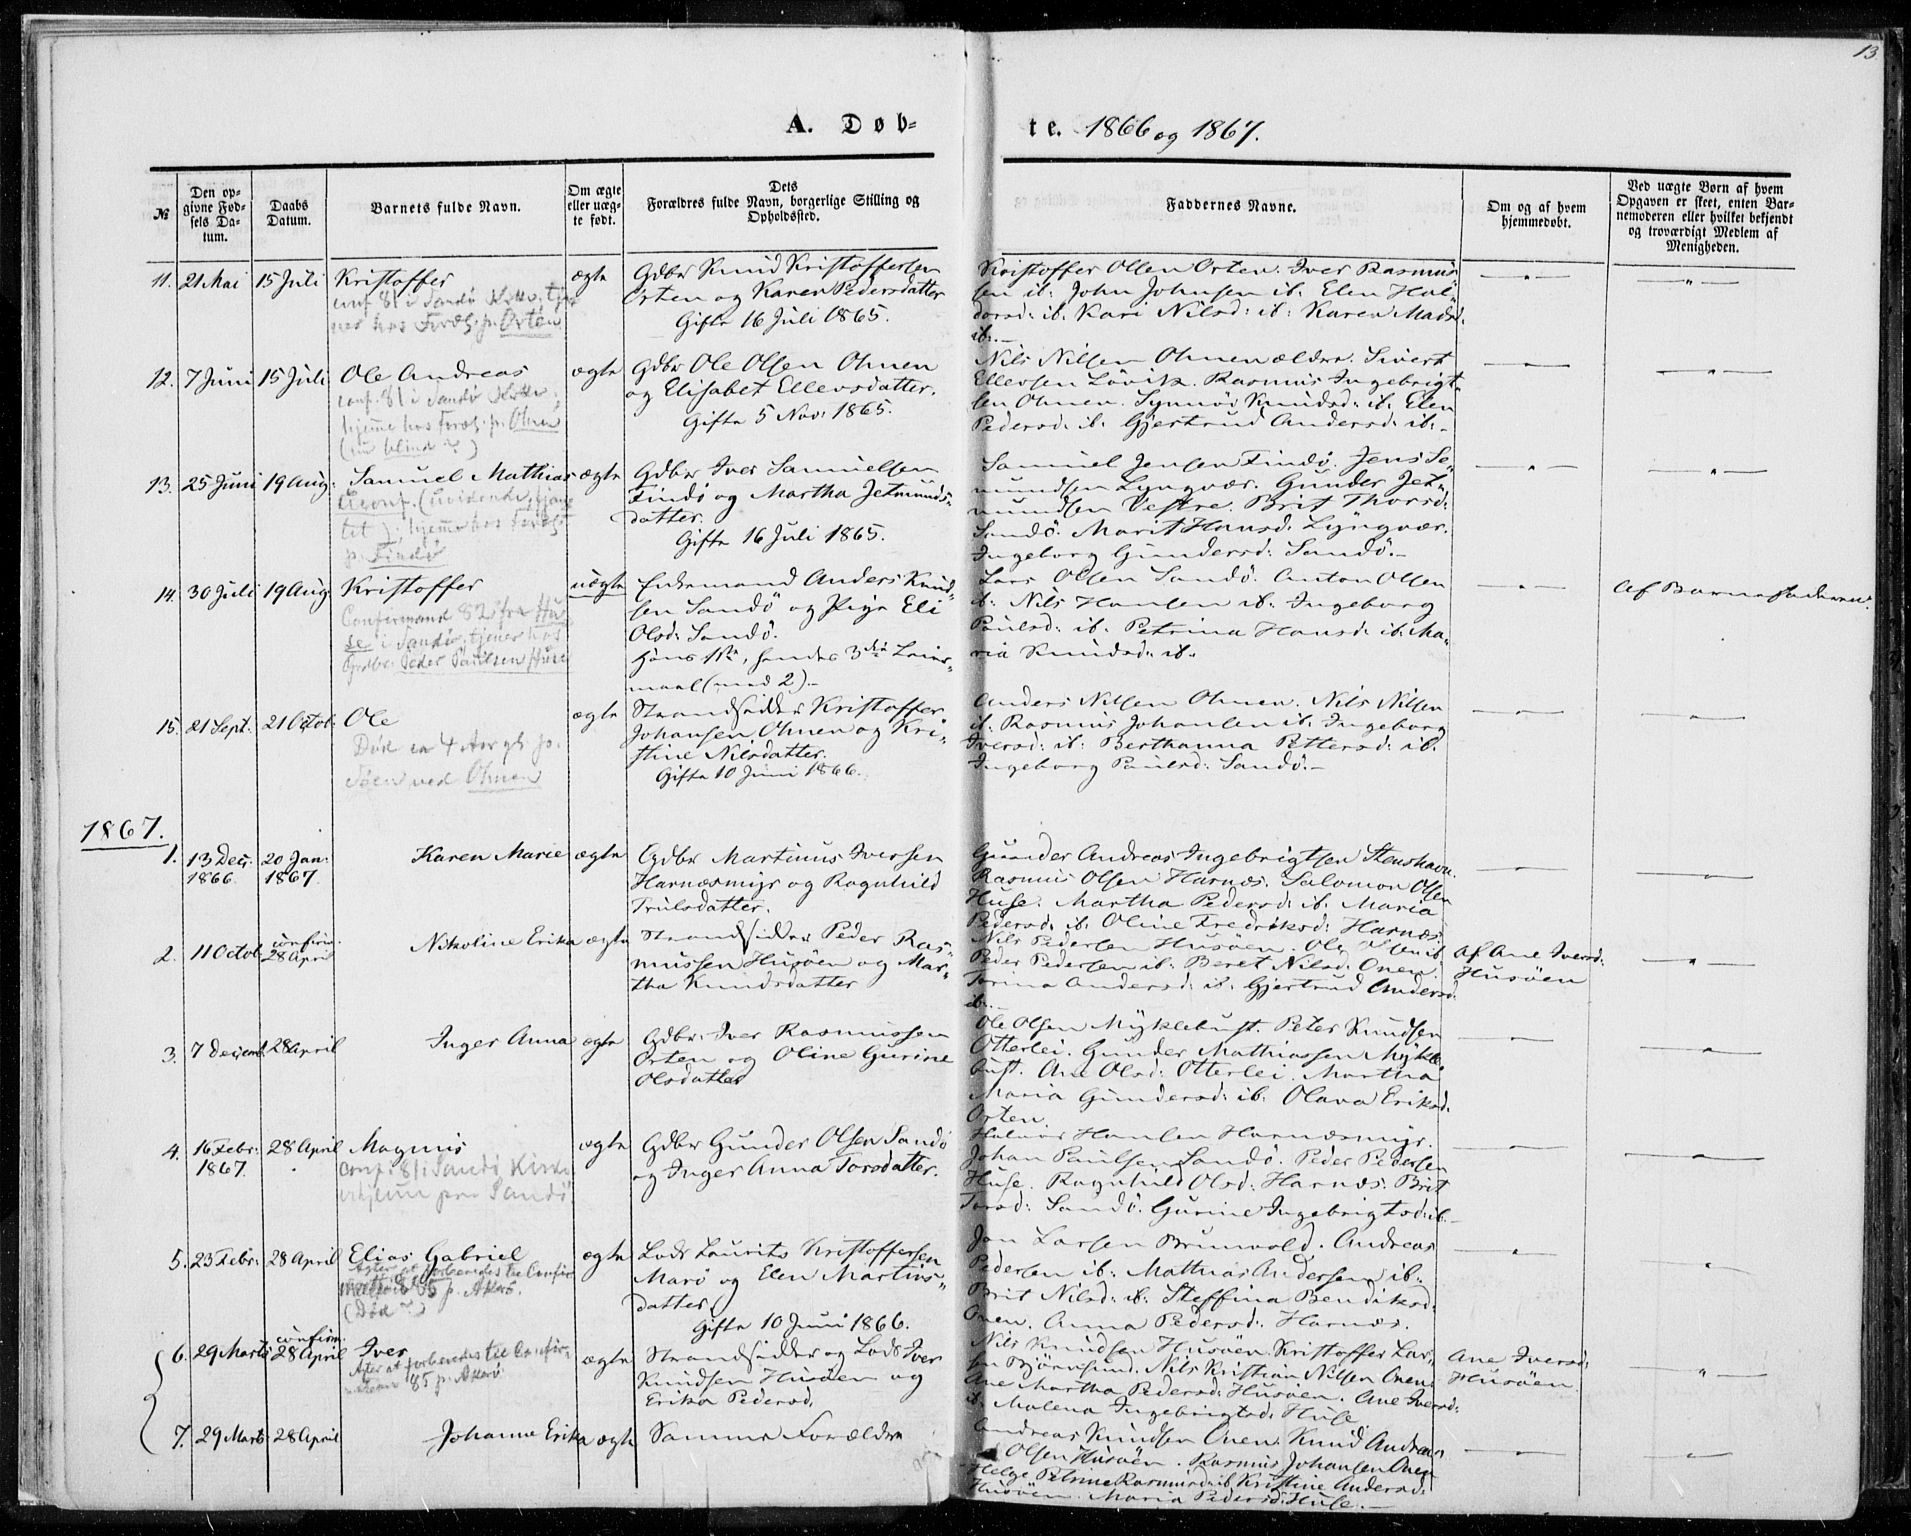 13
A. Døb-
te. 1866 og 1867.
№
Den op-
givne Fød-
sels Da-
tum.
Daabs
Datum.
Barnets fulde Navn.
Om ægte
eller uæg-
te født.
Dets
Forældres fulde Navn, borgerlige Stilling og
Opholdssted.
Faddernes Navne.
Om og af hvem
hjemmedøbt.
Ved uægte Børn af hvem
Opgaven er skeet, enten Bar-
nemoderen eller hvilket bekjendt
og troværdigt Medlem af
Menigheden.
11. 21 Mai 15 Juli Kristoffer ægte
conf. 81 i Sandø Kirke, tje-
ner hos Foræl. p. Orten
Gdbr Knud Kristoffersen
Orten og Karen Pedersdatter
Gifte 16 Juli 1865.
Kristoffer Olsen Orten. Iver Rasmus
sen ib: John Johnsen ib: Elen Hal-
dorsd: ib: Kari Nilsd: ib: Karen Madsd:
ib:
12. 7 Juni 15 Juli Ole Andreas ægte
conf. 81 i Sandø Kirke,
hjemme hos Foræl. p. Ohnen
(nu blind?)
Gdbr Ole Olsen Ohnen
og Elisabet Ellevsdatter.
Gifte 5 Nov: 1865.
Nils Nilsen Ohnen ældre. Sivert
Ellevsen Lövik. Rasmus Ingebrigt-
sen Ohnen. Synnöv Knudsd: ib: Elen
Pedersd: ib: Gjertrud Andersd: ib:
13. 25 Juni 19 Aug: Samuel Mathias ægte
hjemme hos Foræl
p. Findø
Gdbr Iver Samuelsen
Findø og Martha Jetmunds-
datter.
Gifte 16 Juli 1865.
Samuel Jensen Findø. Jens Se-
mundsen Lyngvær. Gunder Jet-
mundsen Vestre. Brit Thorsd:
Sandö. Marit Hansd: Lyngvær.
Ingeborg Gundersd: Sandö.
14. 30 Juli 19 Aug Kristoffer uægte
Confirmand 82 fra Hu-
se i Sandø, tjener hos
Gdbr. Peder Paulsen Huse
Enkemand Anders Knud-
sen Sandö og Pige Eli
Olsd: Sandö.
Hans 1ste, hendes 3die Leier-
maal (med 2).
Lars Olsen Sandö. Anton Olsen
ib: Nils Hansen ib: Ingeborg
Paulsd: ib: Petrina Hansd: ib: Ma-
ria Knudsd: ib.
Af Barnefaderen.
15. 21 Sept. 21 Octob: Ole ægte
Død ca 4 Aar gl. p.
Søen ved Ohnen
Strandsidder Kristoffer
Johansen Ohnen og Kri-
stine Nilsdatter.
Gifte 10 Juni 1866.
Anders Nilsen Ohnen. Nils Nilsen
ib. Rasmus Johansen ib. Ingeborg
Iversd: ib: Berthanna Pettersd: ib.
Ingeborg Paulsd: Sandö.
1867.
1. 13 Dec: 20 Jan: Karen Marie ægte
1866. 1867.
Gdbr Martinus Iversen
Harnæsmyr og Ragnhild
Trulsdatter.
Gunder Andreas Ingebrigtsen Stenshavn.
Rasmus Olsen Harnæs. Salomon Olsen
Huse. Martha Pedersd: ib. Maria
Pedersd: ib. Oline Fredriksd: Harnæs.
2. 11 Octob: confirm. 28 April Nikoline Erika ægte
Strandsidder Peder Ras-
mussen Husöen og Mar-
tha Knudsdatter
Nils Pedersen Husöen. Ole Olsen ib.
Peder Pedersen ib. Beret Nilsd: Onen.
Torina Andersd: ib. Gjertrud Andersd:
ib.
Af Ane Iversd:
Husöen
3. 7 Decemb 28 April Inger Anna ægte
Gdbr: Iver Rasmussen
Orten og Oline Gurine
Olsdatter
Ole Olsen Myklebust. Peter Knudsen
Otterlei. Gunder Mathiassen Mykle-
bust. Ane Olsd: Otterlei. Martha
Maria Gundersd: ib: Olava Eriksd:
Orten.
4. 16 Febr: 28 April Magnus ægte
1867.
conf 81 i Sandø Kirke
Gdbr Gunder Olsen Sandö
og Inger Anna Torsdatter.
Halvor Hansen Harnæsmyr.
Johan Paulsen Sandö. Peder Pedersen
Huse. Ragnhild Olsd: Harnæs. Brit
Torsd: Sandö. Gurine Ingebrigtsd: ib.
5. 23 Febr: 28 April Elias Gabriel ægte
Agter at forberedes til Confir-
mation 85 p. Akerø.
(Död?)
Lods Laurits Kristoffersen
Marö og Elen Martins-
datter.
Gifte 10 Juni 1866.
Jon Larsen Brunvold. Andreas
Pedersen ib. Mathias Andersen ib.
Brit Nilsd: ib: Steffina Bendiksd:
Onen. Anna Pedersd: Harnæs.
6. 29 Marts confirm. 28 April Iver ægte
Agter at forberedes til Confir-
mation 85 p. Akerø
Strandsidder og Lods Iver
Knudsen Husöen og
Erika Pedersd.
Nils Knudsen Husöen. Kristoffer Lar-
sen Björnsund. Nils Kristian Nilsen Onen.
Ane Martha Pedersd: Husöen. Ane Iversd:
ib. Malena Ingebrigtsd: Huse
Ane Iversd:
Husöen.
7. 29 Marts 28 April Johanne Erika ægte
Samme Forældre
Andreas Knudsen Onen. Knud Andreas
Olsen Husöen. Rasmus Johansen Onen
Helge Petrine Rasmusd: ib Kristine Andersd:
Husöen. Maria Pedersd: Huse.